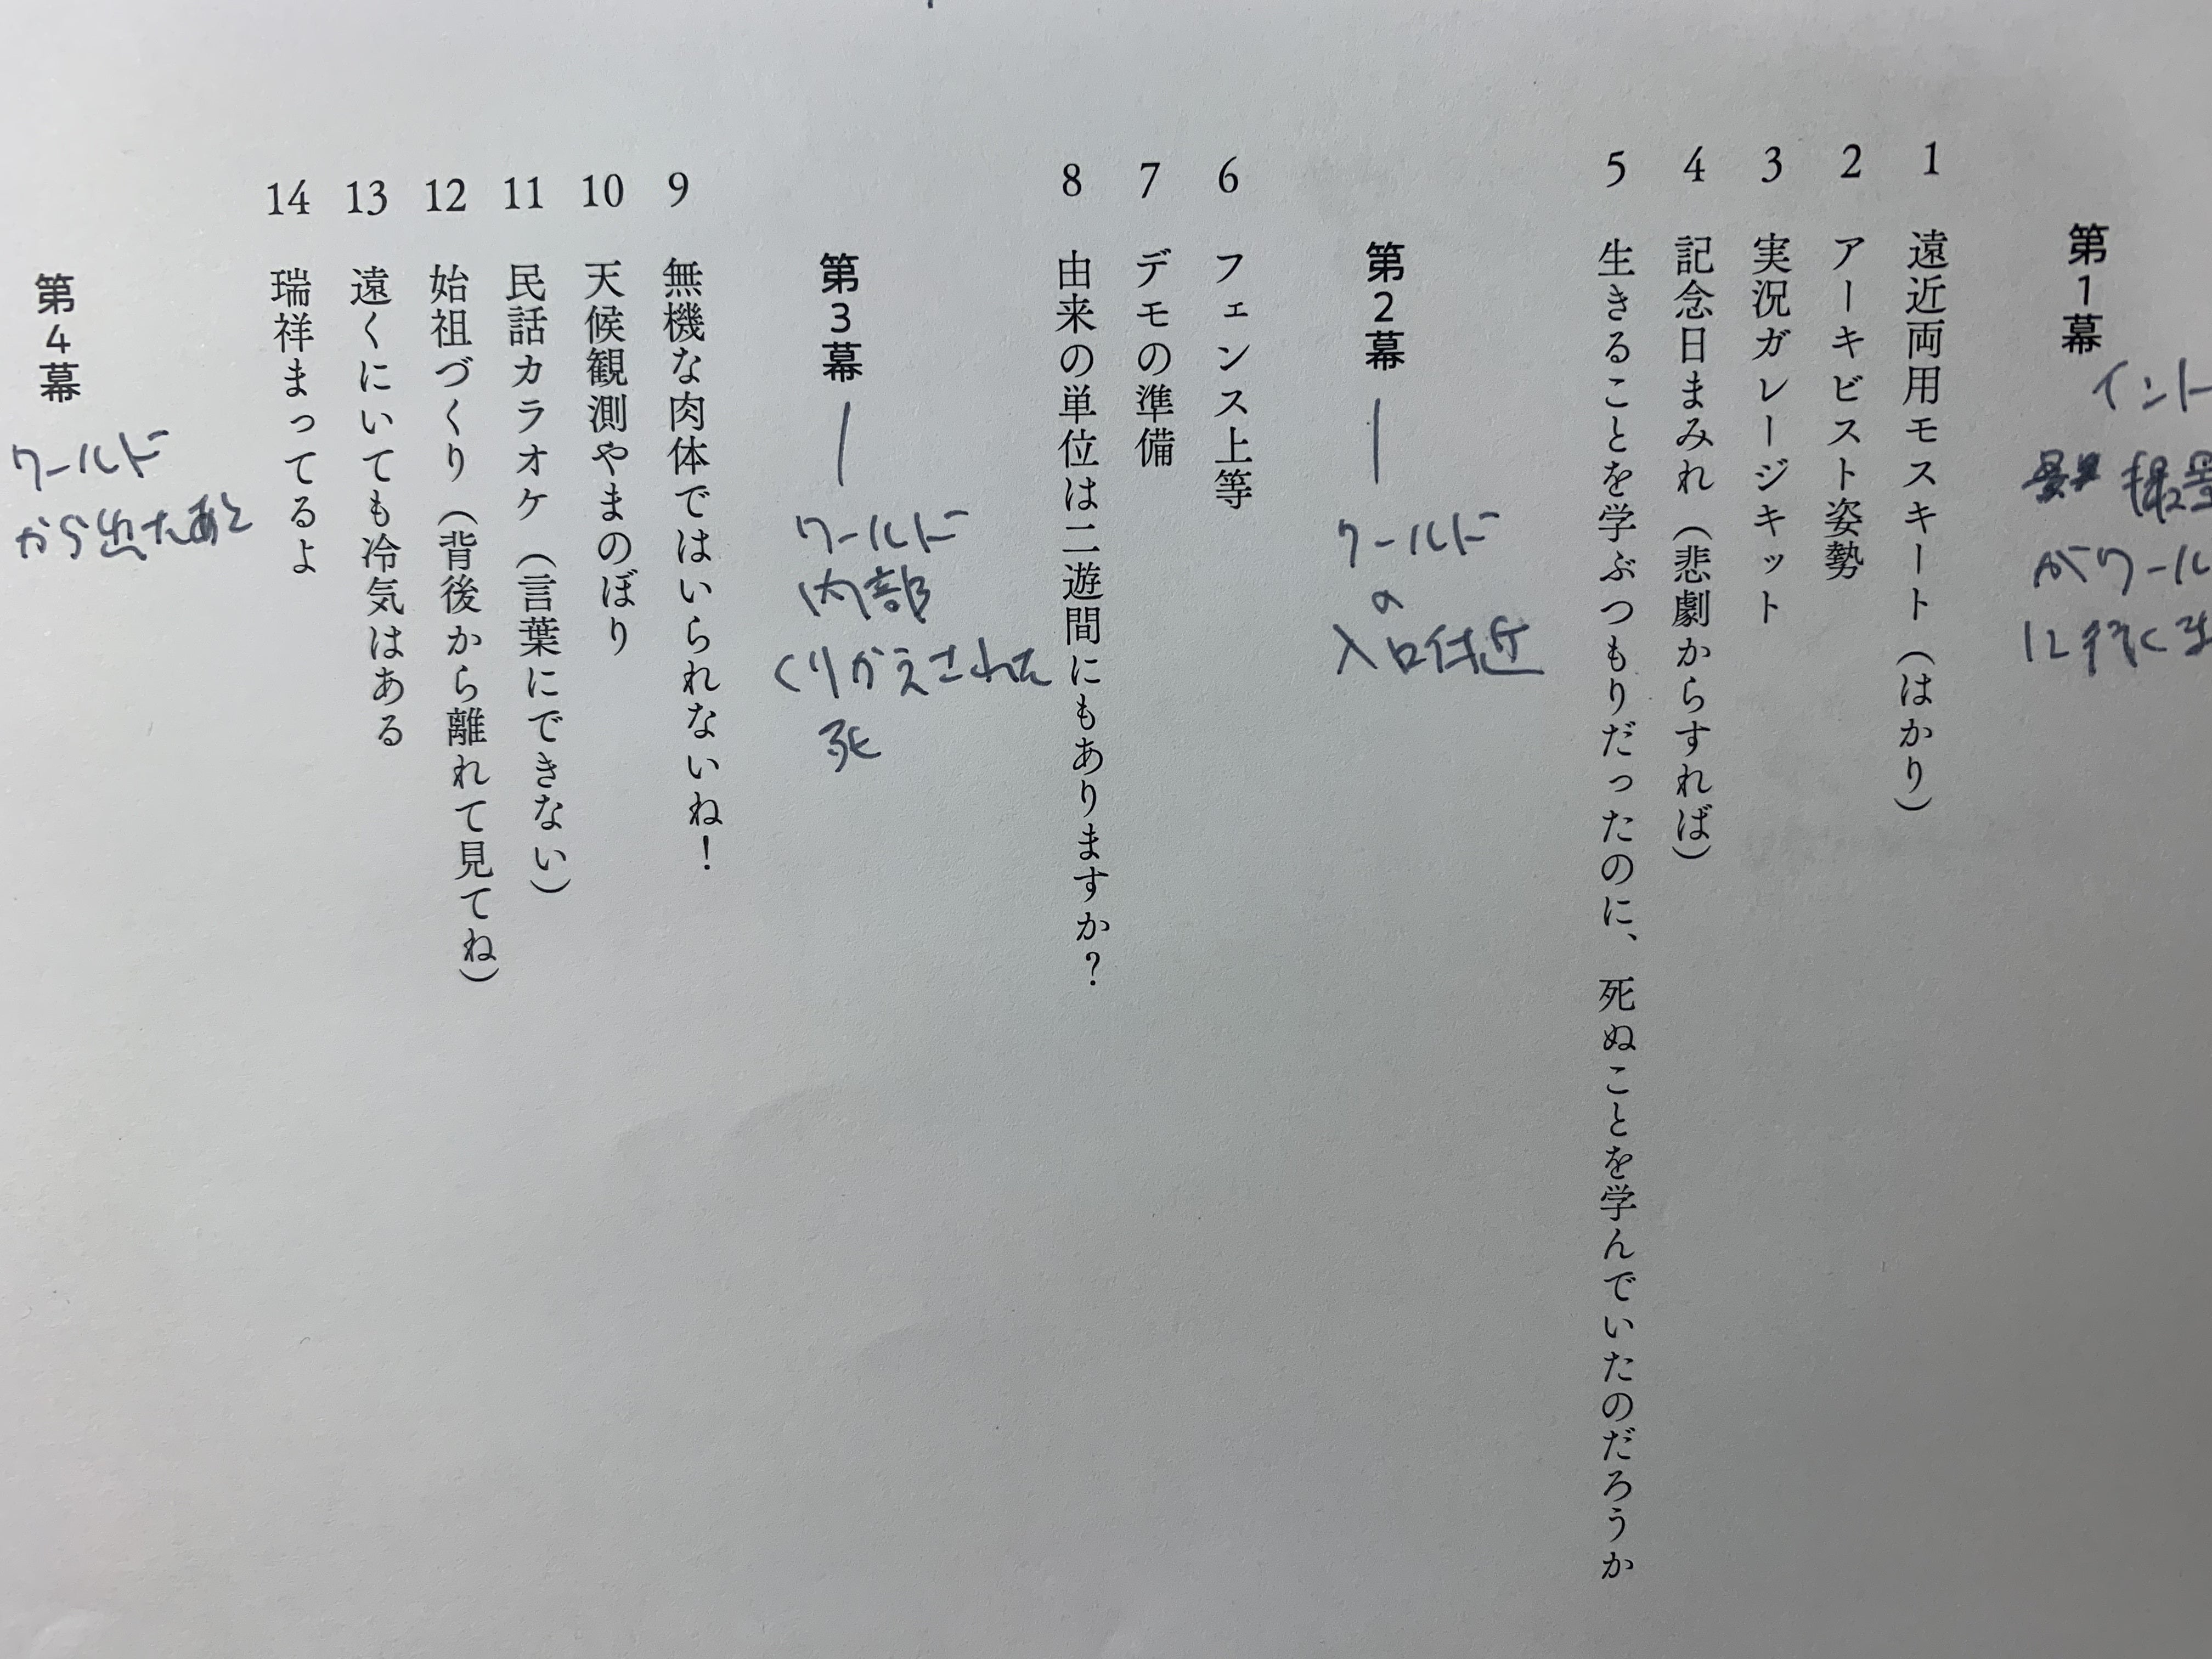 第1幕
イント
撮影
がワール
に行くま
1 遠近両用モスキート（はかり）
2 アーキビスト姿勢
3 実況ガレージキット
4 記念日まみれ（悲劇からすれば）
5 生きることを学ぶつもりだったのに、死ぬことを学んでいたのだろうか
第2幕
ワールド
の
入口付近
6 フェンス上等
7 デモの準備
8 由来の単位は二遊間にもありますか？
第3幕
ワールド
内部
くりかえされた
死
9 無機な肉体ではいられないね！
10 天候観測やまのぼり
11 民話カラオケ（言葉にできない）
12 始祖づくり（背後から離れて見てね）
13 遠くにいても冷気はある
14 瑞祥まってるよ
第4幕
ワールド
から出たあと